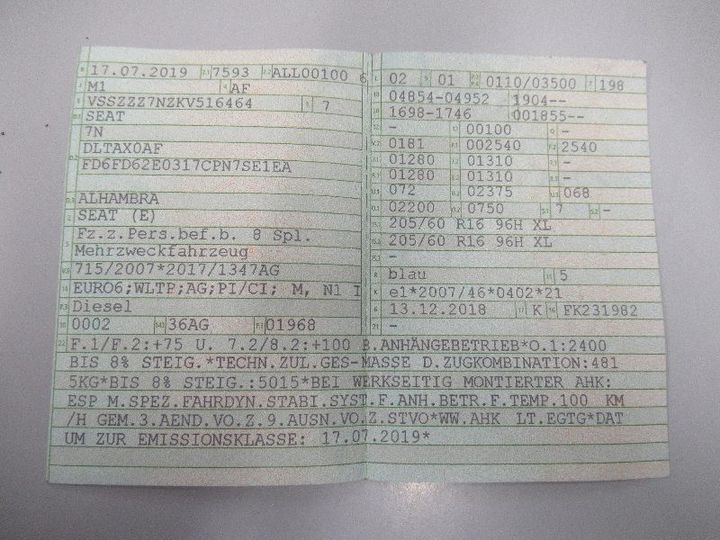 17.07.2019 7593 ALL00100 6
M1 AF
VSSZZZ7NZKV516464 7
SEAT
7N
DLTAX0AF
FD6FD62E0317CPN7SE1EA
ALHAMBRA
SEAT (E)
Fz.z.Pers.bef.b. 8 Spl.
Mehrzweckfahrzeug
715/2007*2017/1347AG
EURO6;WLTP;AG;PI/CI; M, N1 I
Diesel
0002 36AG 01968
02 01 0110/03500 198
04854-04952 1904--
1698-1746 001855--
- 00100 -
0181 002540 2540
01280 01310 -
01280 01310 -
072 02375 068
02200 0750 7 -
205/60 R16 96H XL
205/60 R16 96H XL
-
blau 5
e1*2007/46*0402*21
13.12.2018 K FK231982
-
F.1/F.2:+75 U. 7.2/8.2:+100 B.ANHÄNGEBETRIEB*O.1:2400
BIS 8% STEIG.*TECHN.ZUL.GES-MASSE D.ZUGKOMBINATION:481
5KG*BIS 8% STEIG.:5015*BEI WERKSEITIG MONTIERTER AHK:
ESP M.SPEZ.FAHRDYN.STABI.SYST.F.ANH.BETR.F.TEMP.100 KM
/H GEM.3.AEND.VO.Z.9.AUSN.VO.Z.STVO*WW.AHK LT.EGTG*DAT
UM ZUR EMISSIONSKLASSE: 17.07.2019*